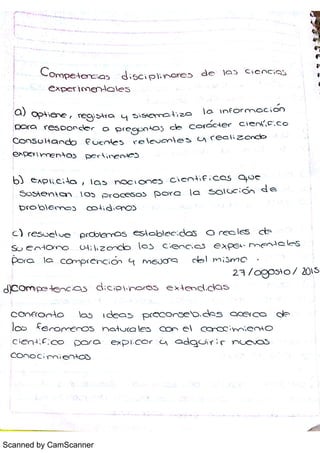 Competencias disciplinares de las ciencias
experimentales
a) optiene, registra y sistematiza la información
para responder a preguntas de carácter cientifico
consultando fuentes relevantes y realizando
experimentos pertinentes
b) explicita, las nociones cientificas que
sustentan los procesos para la solución de
problemas cotidianos
c) resuelve problemas establecidos o reales de
su entorno utilizando las ciencias experimentales
para la comprención y mejora del mismo.
27/agosto/2015
d)competencias diciplinares extendidas
confronta las ideas preconsebidas acerca de
los fenomenos naturales con el conocimiento
cientifico para explicar y adquirir nuevos
conocimientos
Scanned by CamScanner